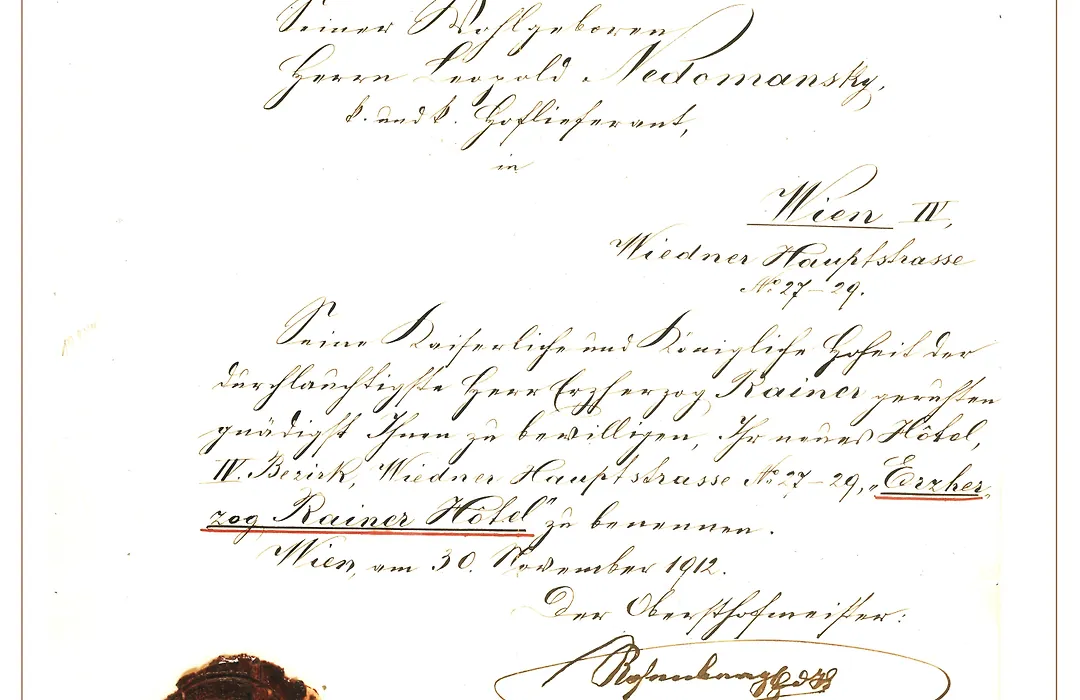 Seiner Wohlgeboren
Herrn Leopold Nedomansky,
k. und k. Hoflieferant,
in
Wien IV,
Wiedner Hauptstrasse
No 27-29.
Seine Kaiserliche und Königliche Hoheit der
durchlauchtigste Herr Erzherzog Rainer geruhten
gnädigst Ihnen zu bewilligen, Ihr neues Hôtel,
IV. Bezirk, Wiedner Hauptstrasse No 27-29, „Erzher-
zog Rainer Hôtel" zu benennen.
Wien, am 30. November 1912.
Der Obersthofmeister: